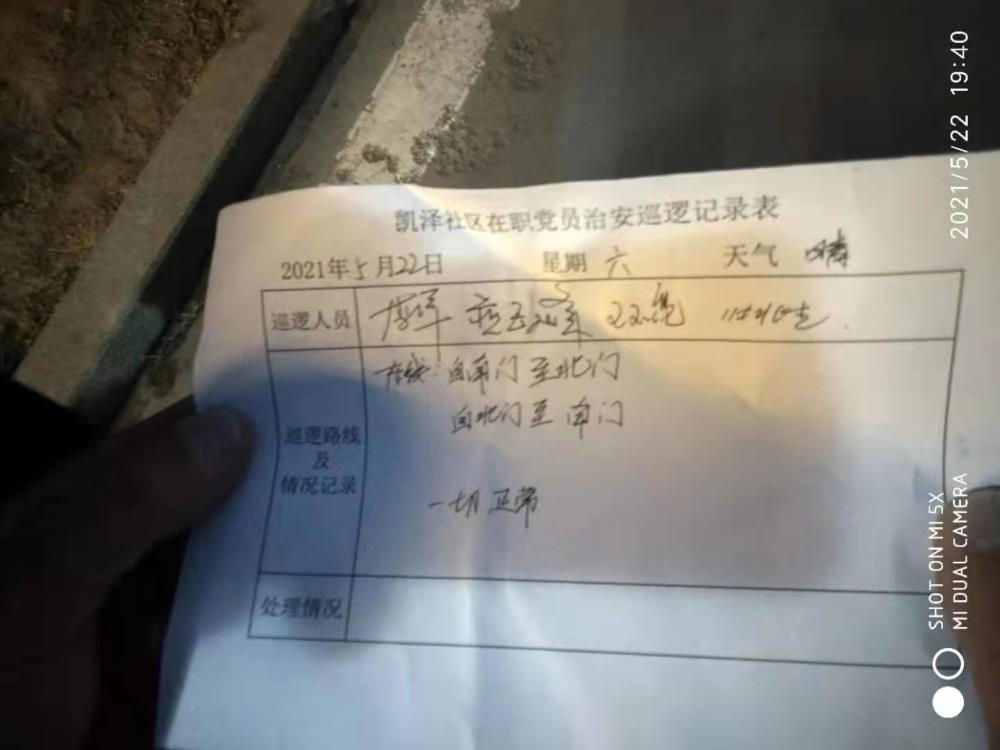 凯泽社区在职党员治安巡逻记录表
2021年5月22日 星期 六 天气 晴
巡逻人员
巡逻路线及情况记录
路线：自南门至北门
自北门至南门
一切正常
处理情况
2021/5/22 19:40
SHOT ON MI 5X
MI DUAL CAMERA